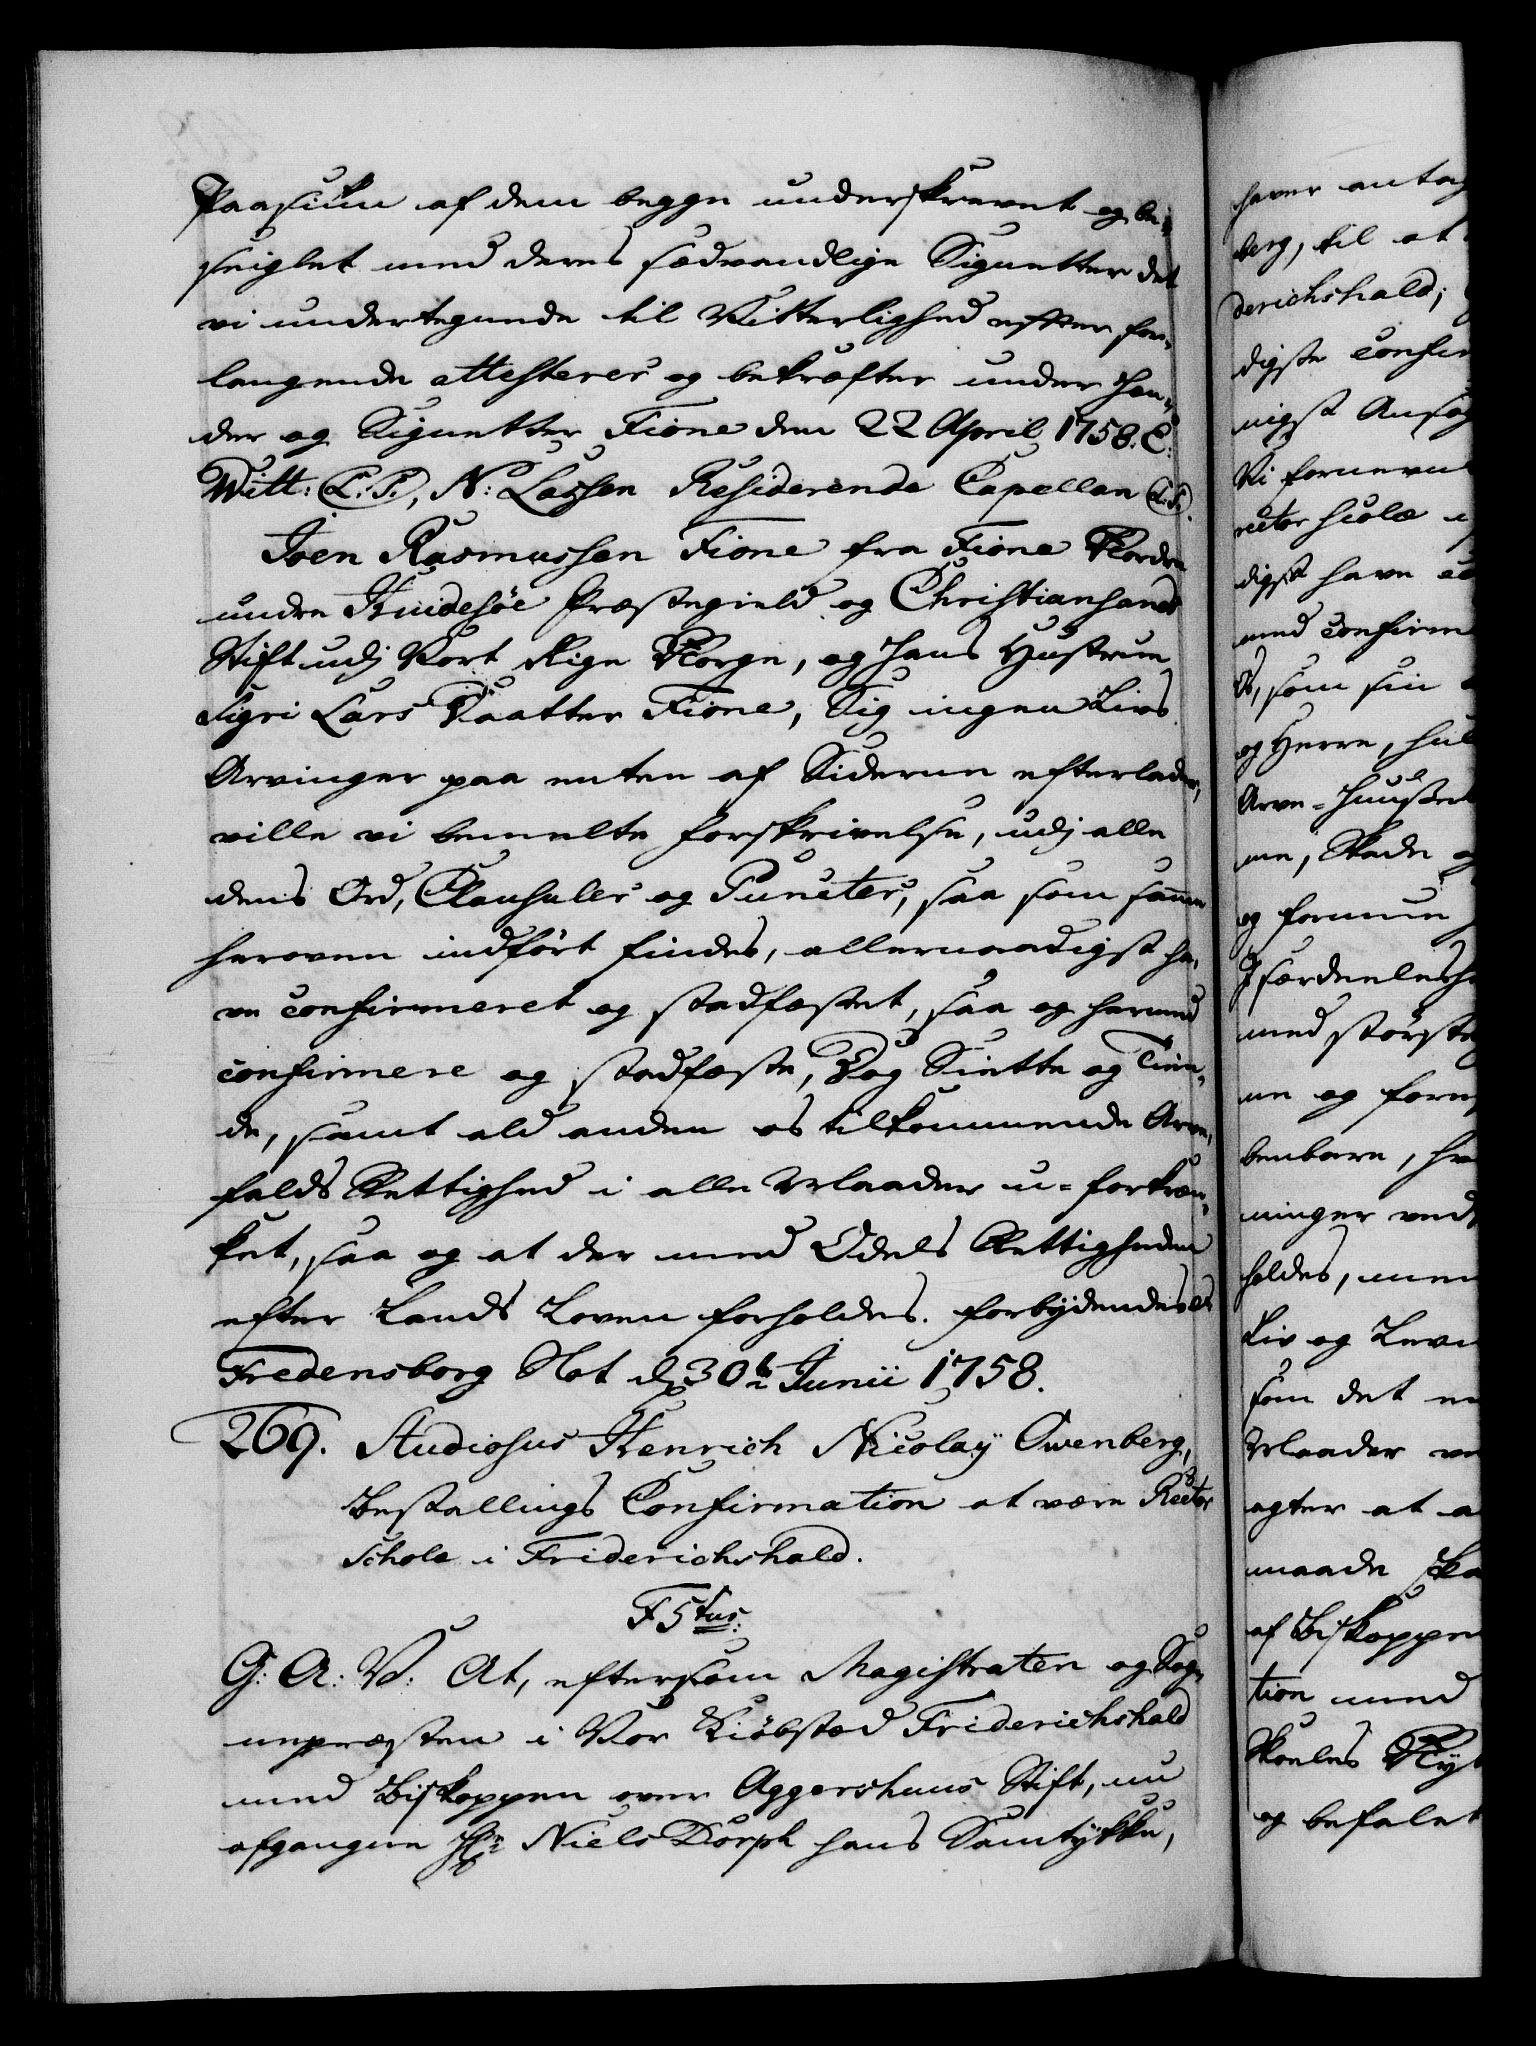 Paasiun af dem begge underskrevet og be-
seiglet med deres sædvandlige Signetter det
vi undertegnede til Vitterlighed efter for-
langende attesterer og bekræfter under Hæn-
der og Signetter Fione den 22 April 1758. C:
Witt: (L.S.), N: Lassen Residerende Capellan (L.S.).
Joen Rasmussen Fione fra Fione Nordre
under Huidesøe Præstegield og Christiansands
Stift udj Vort Rige Norge, og hans Hustrue
Sigri Lars Daatter Fione, Sig ingen Livs
Arvinger paa enten af Siderne efterlader,
ville vi bemelte Forskrivelse, udj alle
dens Ord, Clausuler og Puncter, saa som samme
heroven indført findes, allernaadigst ha-
ve confirmeret og stadfæstet, saa og hermed
confirmere og stadfæste, Dog Siette og Tien-
de, samt ald anden os tilkommende Arve-
falds Rettighed i alle Maader u-forkræn-
ket, saa og at der med Odels Rettigheden
efter Lands Loven forholdes. Forbydendes etc
Fredensborg Slot d. 30te Junii 1758.
269. Studiosus Henrich Nicolay Owenberg,
Bestallings Confirmation at være Rector
Schole i Friderichshald.
F 5tus:
G: A: V: At, eftersom Magistraten og Sog-
nepræsten i Vor Kiøbstæd Friderichshald
med Biskoppen over Aggershuus Stift, nu
afgangne Hr. Niels Dorph hans Samtykke,
haver antag
berg, til at
derichshald;
digste confir
nigst Ansøg
Vi fornevn
rector scolæ
digst have
med confirm
Os, som sin
og Herre, hul
Arve-Huuset
me, Skade og
og formue
Jsærdeleshe
med største
ne og forn
benbare, hv
ninger ved
holdes, men
Liv og Leve
som det en
Maader ve
agter at a
maade ska
af Biskoppen
tion med
Skoeles Nyt
og befalet